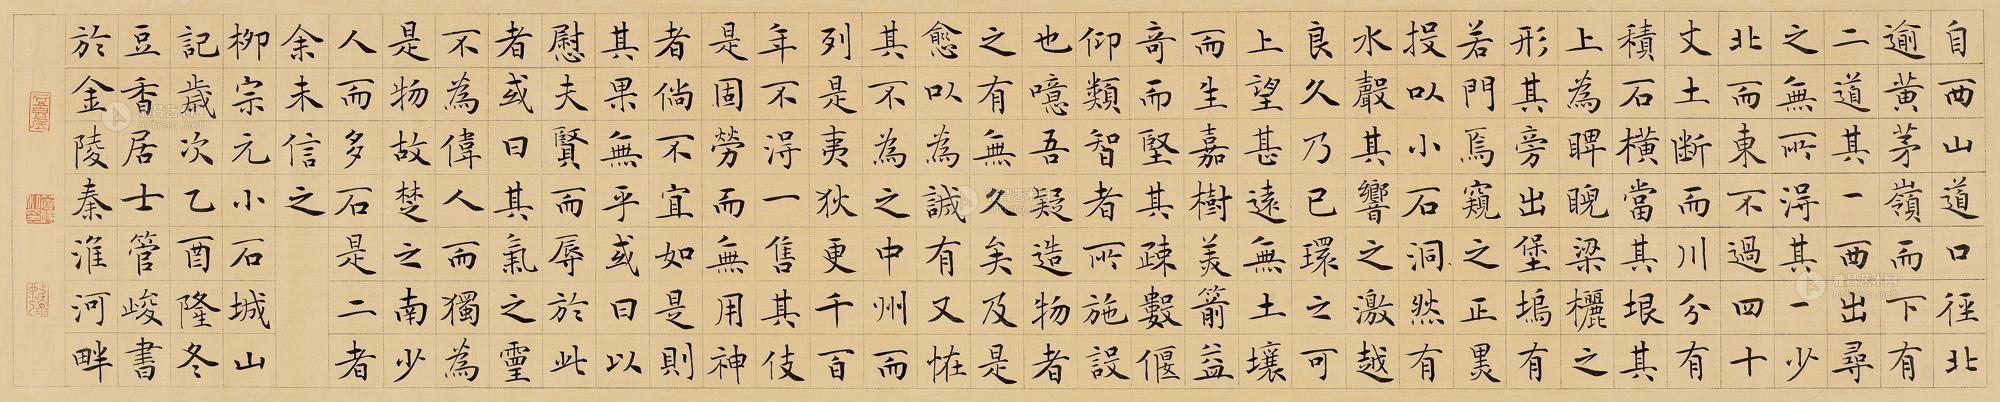 自西山道口徑北
逾黃茅嶺而下有
二道其一西出尋
之無所得其一少
北而東不過四十
丈土斷而川分有
積石橫當其垠其
上為睥睨梁欐之
形其旁出堡塢有
若門焉窺之正黑
投以小石洞然有
水聲其響之激越
良久乃已環之可
上望甚遠無土壤
而生嘉樹美箭益
奇而堅其疎數偃
仰類智者所施設
也噫吾疑造物者
之有無久矣及是
愈以為誠有又恠
其不為之中州而
列是夷狄更千百
年不得一售其伎
是固勞而無用神
者倘不宜如是則
其果無乎或曰以
慰夫賢而辱於此
者或曰其氣之靈
不為偉人而獨為
是物故楚之南少
人而多石是二者
余未信之
柳宗元小石城山
記歲次乙酉隆冬
豆香居士管峻書
於金陵秦淮河畔
雅昌艺术网
artron.net